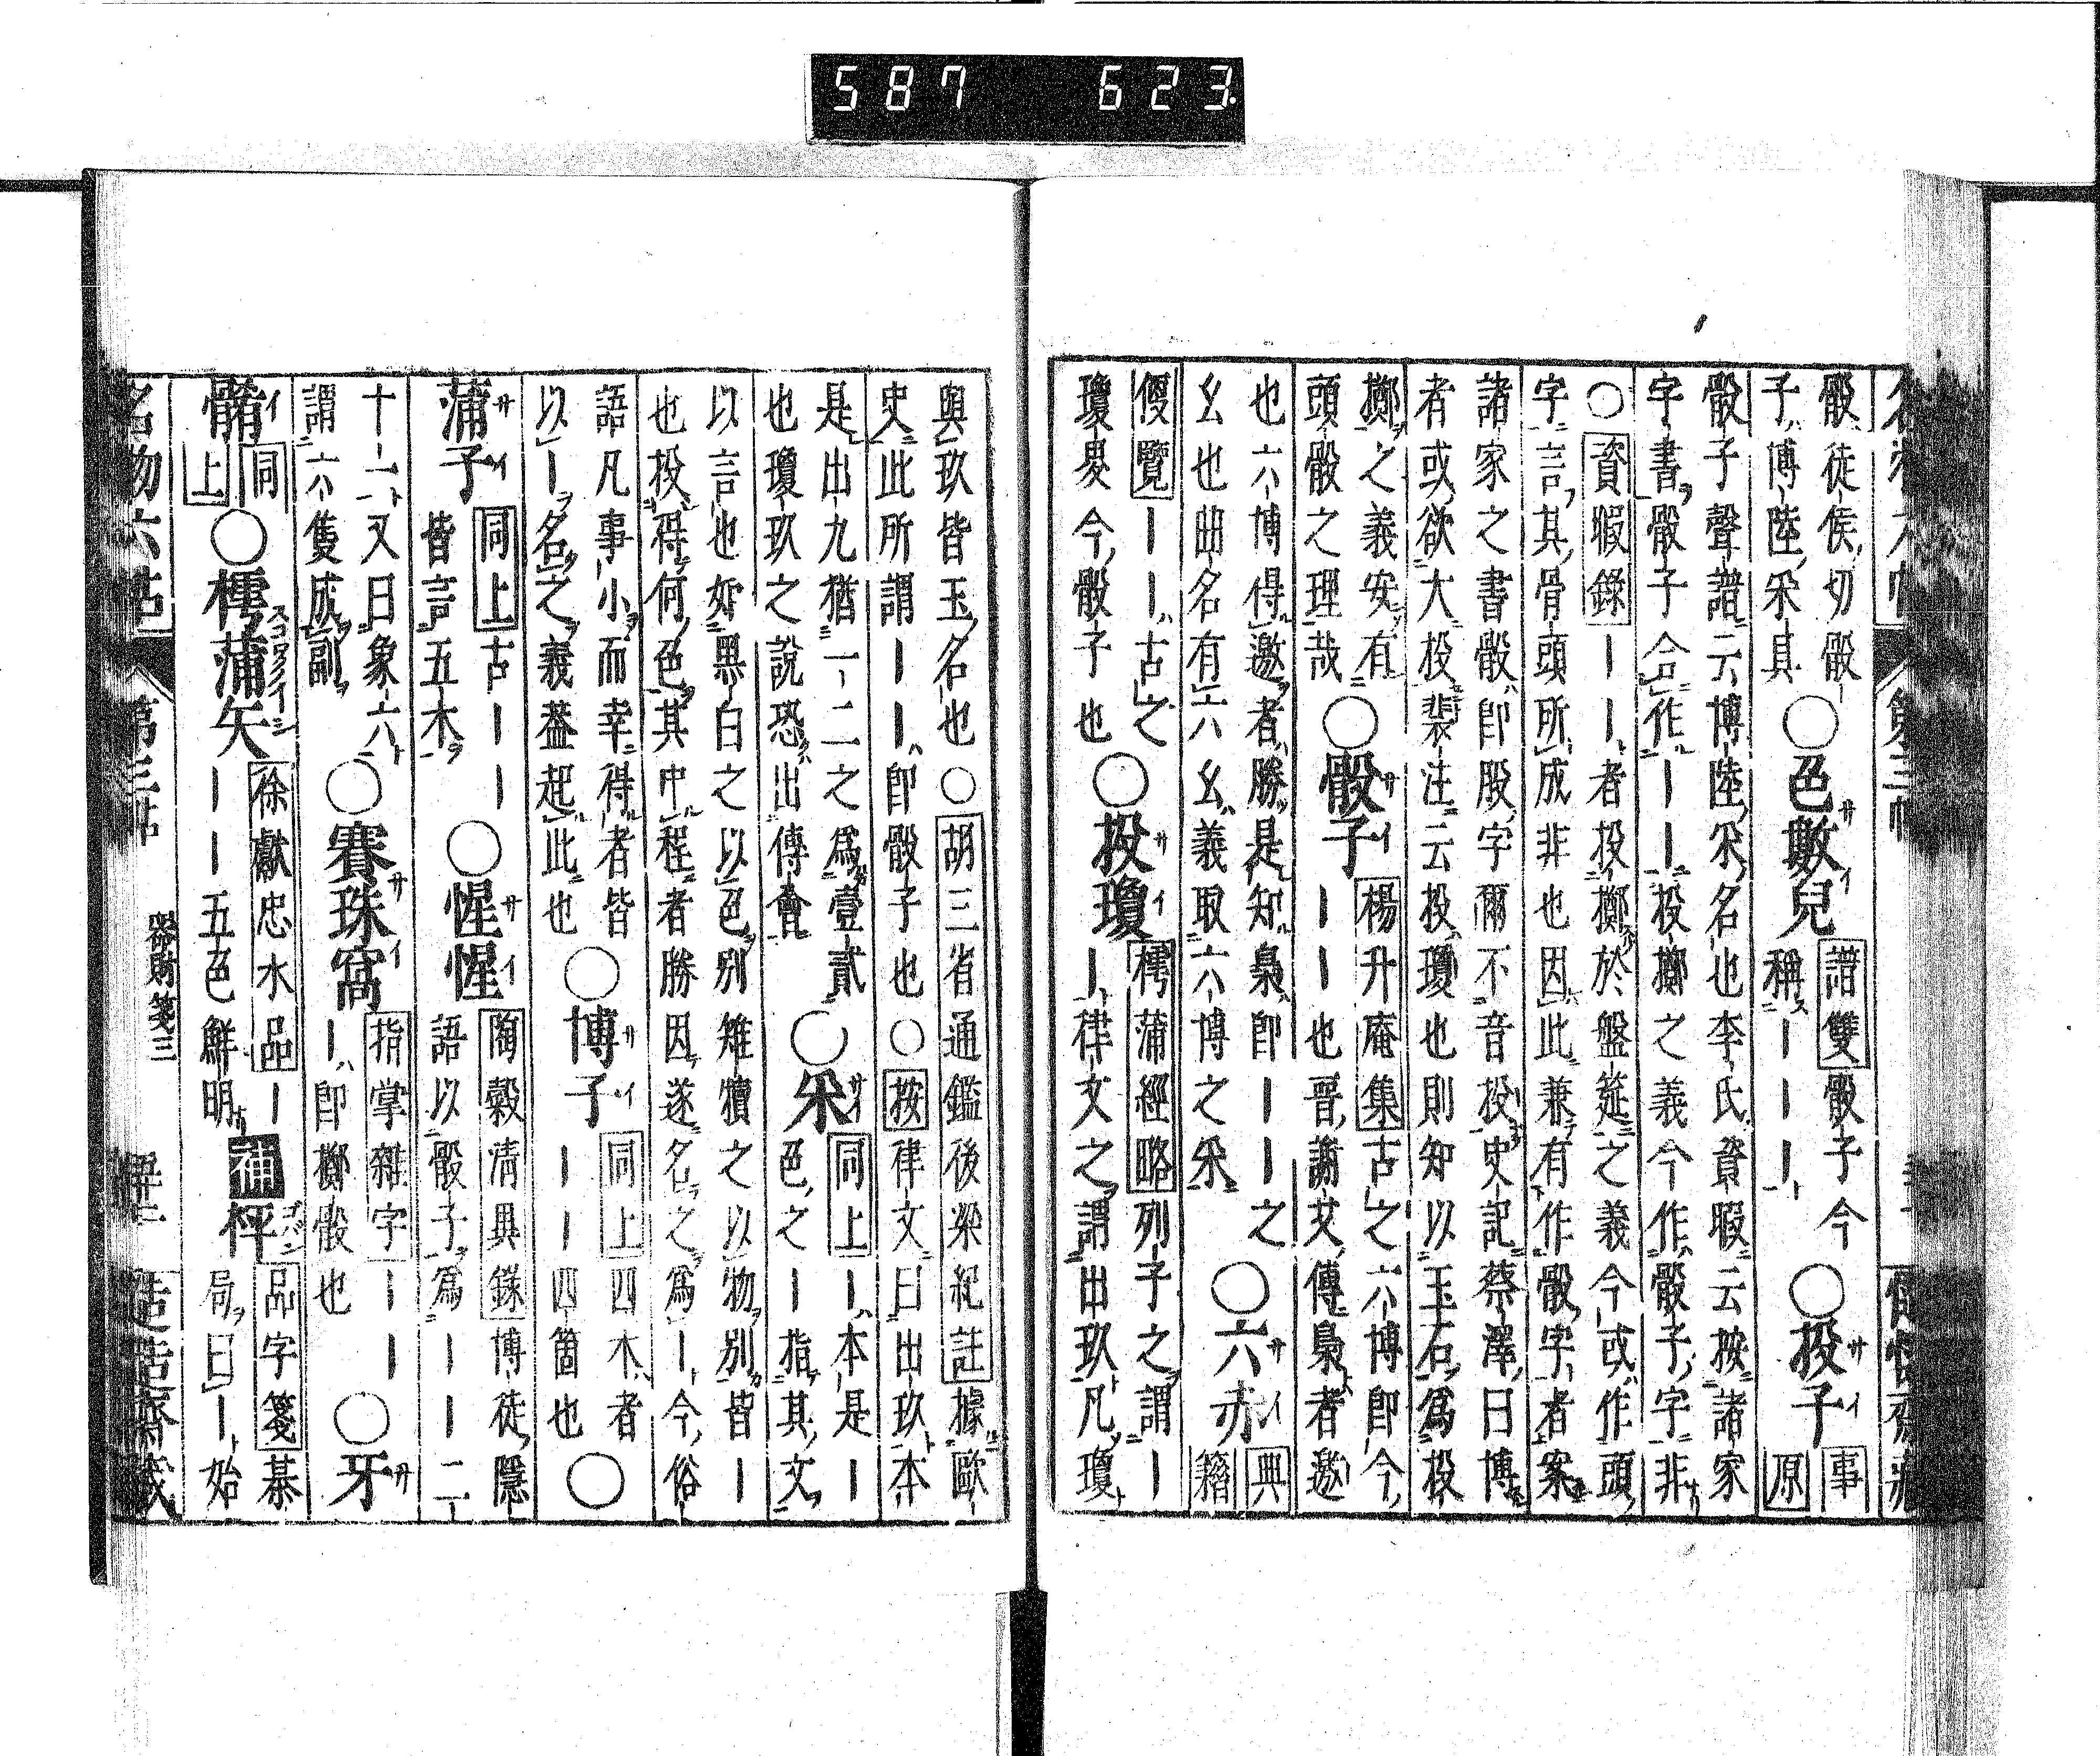 骰徒侯切骰
子博陸采具
○色數兒
譜雙骰子今
稱｜｜｜
○投子
事
原
骰子聲譜云博陸采名也李氏資暇云按諸家
字書骰子合作｜｜投擲之義今作骰子字非
○資暇錄｜｜者投擲於盤筵之義今或作頭
字言其骨頭所成非也因此兼有作骰字者案
諸家之書骰即股字爾不音投史記蔡澤曰博
者或欲大投裴注云投瓊也則知以玉石爲投
擲之義安有
頭骰之理哉
○骰子
楊升庵集古之六博即今
｜｜也晉謝艾傳梟者邀
也六博得邀者勝是知梟即｜｜之
幺也曲名有六幺幺義取六博之采
○六赤
典
籍
便覽｜｜古之
瓊畟今骰子也
○投瓊
樗蒲經略列子之謂｜
｜律文之謂出玖凡瓊
與玖皆玉名也○胡三省通鑑後梁紀註據歐
史此所謂｜｜即骰子也○按律文曰出玖本
是出九猶一二之爲壹貳
也瓊玖之說恐出傳會
○采
同上｜本是｜
色之｜指其文
以言也如黑白之以色別雉犢之以物別皆｜
也投得何色其中程者勝因遂名之爲｜今俗
語凡事小而幸得者皆
以｜名之義蓋起此也
○博子
同上四木者
｜｜四箇也
○
蒲子
同上古｜｜
皆言五木
○惺惺
陶穀淸異錄博徒隱
語以骰子爲｜｜二
十一又曰象六
謂六隻成副
○賽珠窩
指掌雜字｜｜
｜即擲骰也
○牙
同
上
○樗蒲矢
徐獻忠水品｜
｜｜五色鮮明
補枰
品字箋棊
局曰｜始
名物六帖 第三帖 器財箋三
587 623.